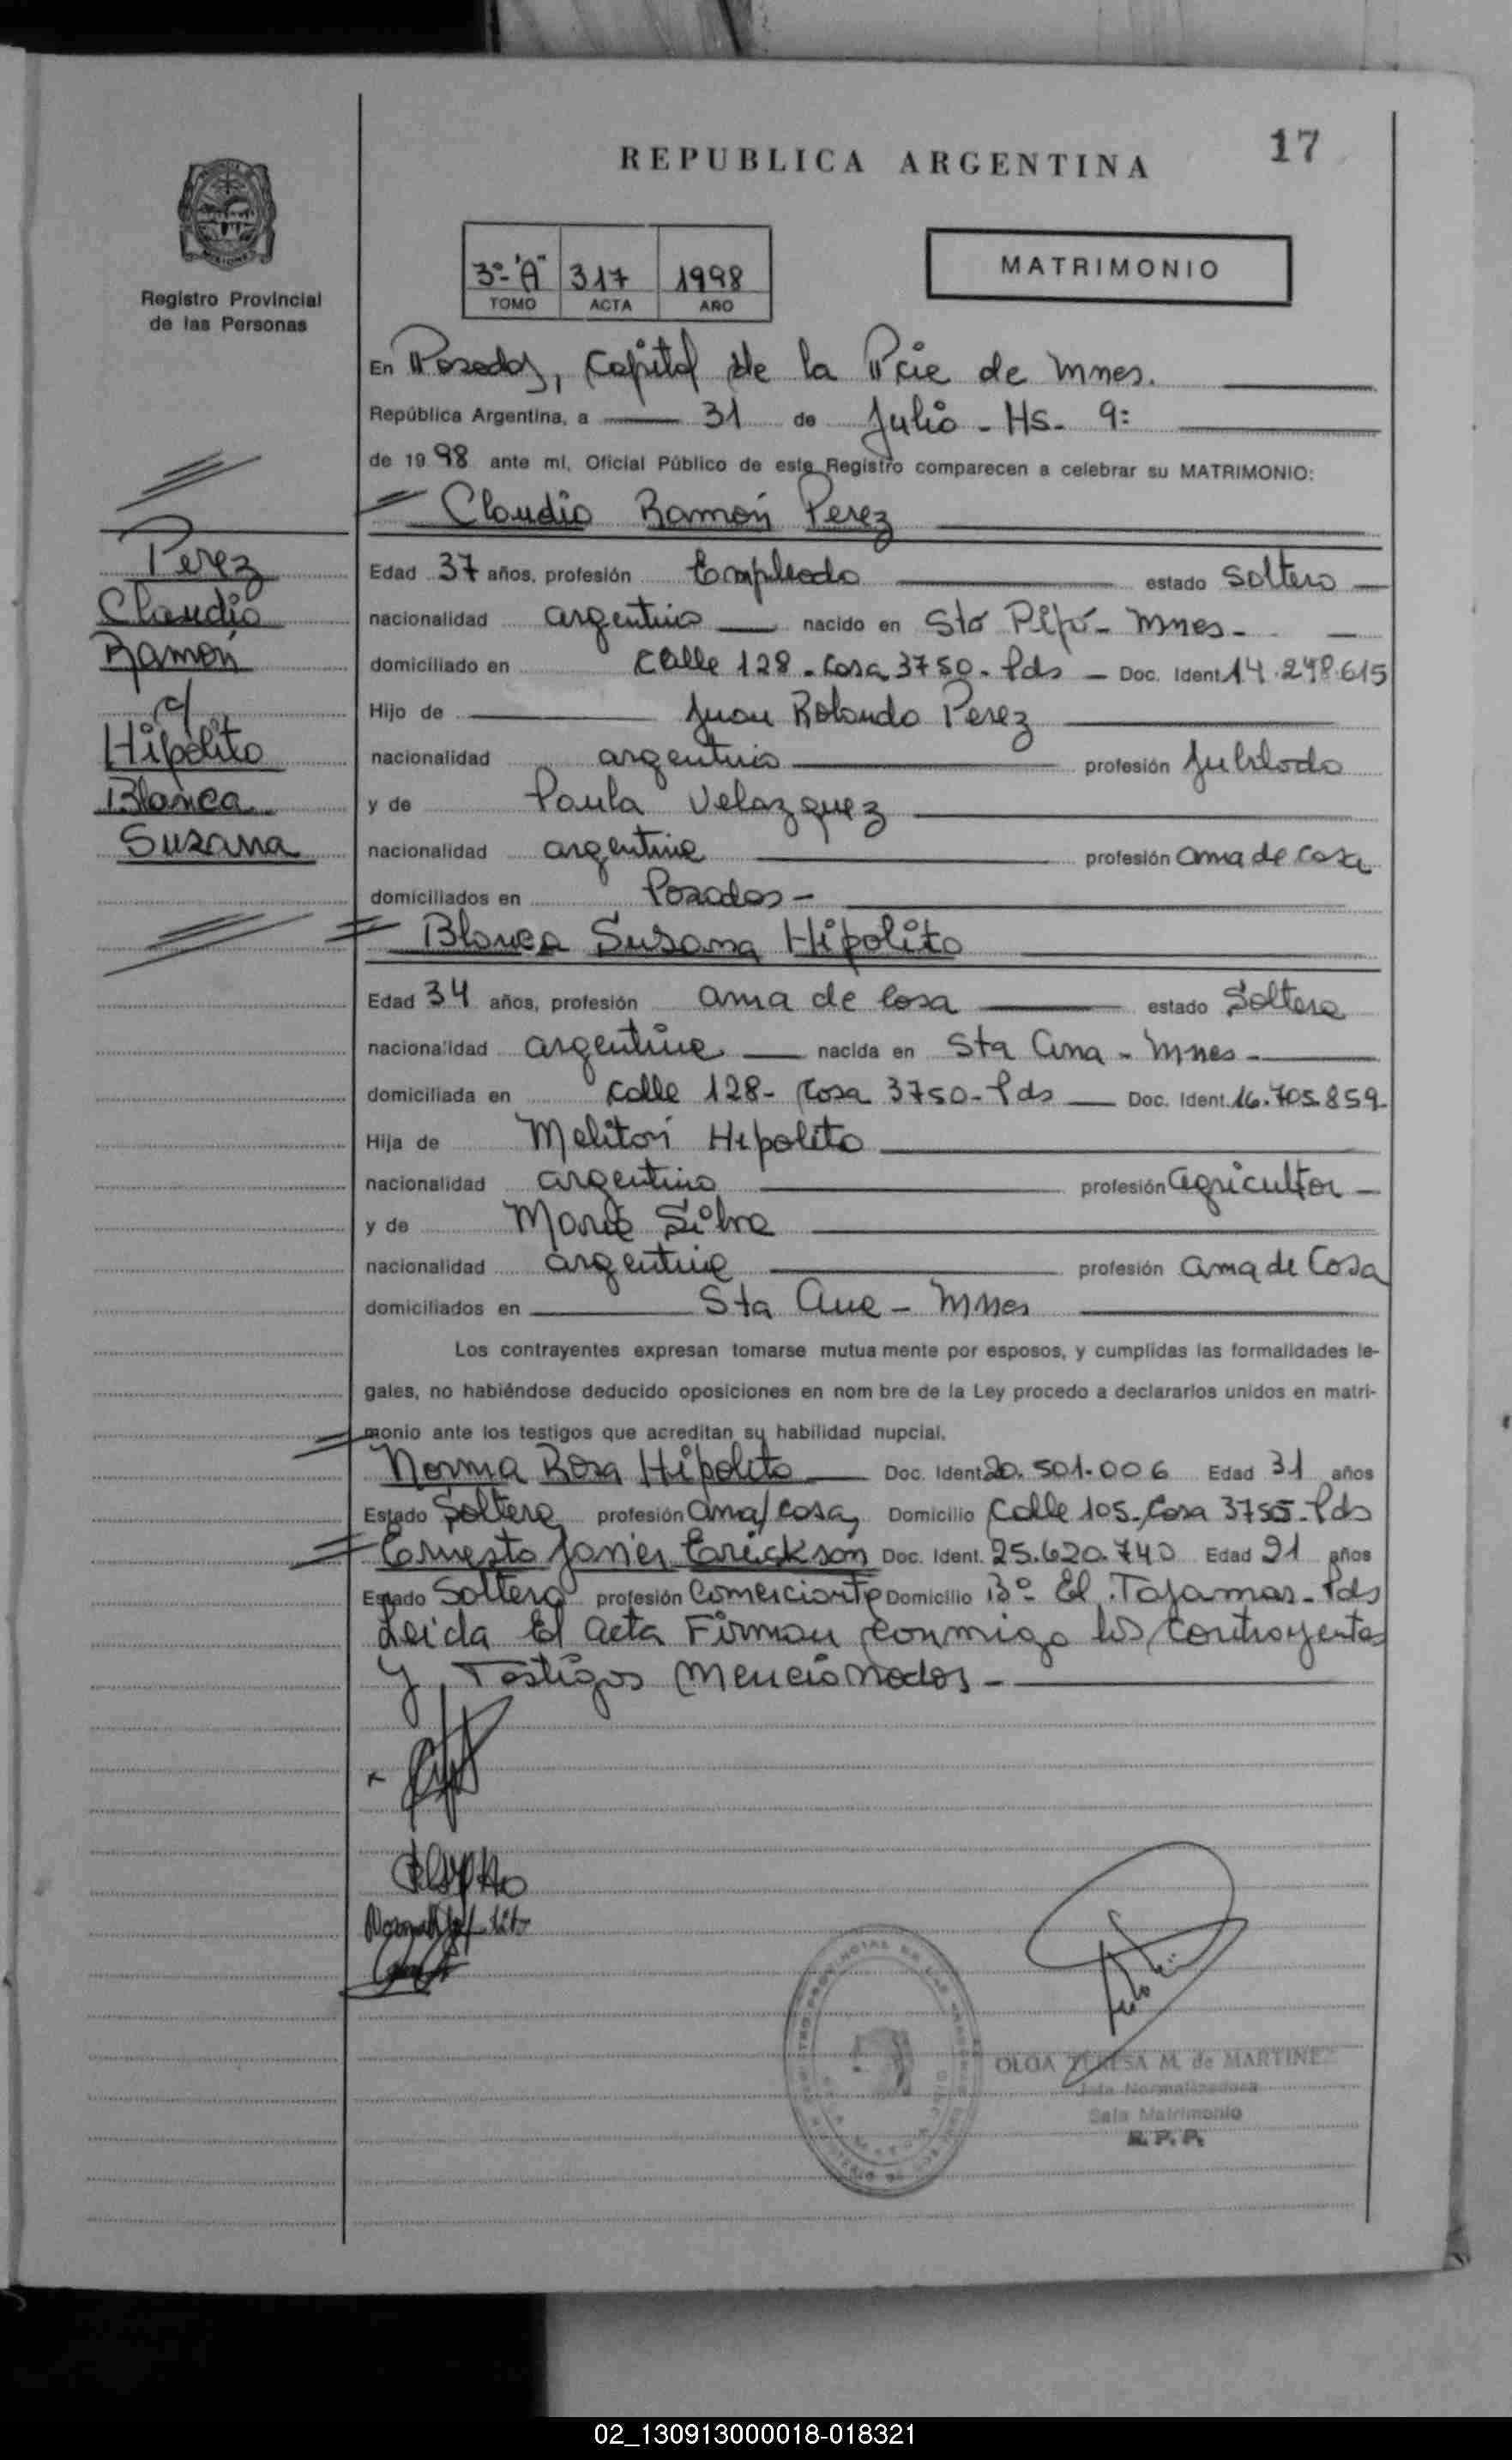 17
REPUBLICA ARGENTINA
3º "A" 317 1998
TOMO ACTA AÑO
MATRIMONIO
Registro Provincial
de las Personas
En Posadas, Capital de la Pcie de Mnes.
República Argentina, a 31 de Julio - Hs. 9:
de 1998 ante mí, Oficial Público de este Registro comparecen a celebrar su MATRIMONIO:
Claudio Ramón Perez
Perez
Claudio
Ramón
c/
Hipólito
Blanca
Susana
Edad 37 años, profesión Empleado estado Soltero
nacionalidad argentino nacido en Sto Pipó - Mnes -
domiciliado en Calle 128 - Casa 3750 - Pds - Doc. Ident. 14.248.615
Hijo de Juan Rolando Perez
nacionalidad argentino profesión Jubilado
y de Paula Velazquez
nacionalidad argentina profesión ama de casa
domiciliados en Posadas -
Blanca Susana Hipolito
Edad 34 años, profesión ama de casa estado Soltera
nacionalidad argentina nacida en Sta Ana - Mnes -
domiciliada en calle 128 - Casa 3750 - Pds Doc. Ident. 16.705.859
Hija de Meliton Hipolito
nacionalidad argentino profesión agricultor -
y de María Silva
nacionalidad argentina profesión ama de Casa
domiciliados en Sta Ana - Mnes
Los contrayentes expresan tomarse mutua mente por esposos, y cumplidas las formalidades le-
gales, no habiéndose deducido oposiciones en nom bre de la Ley procedo a declararlos unidos en matri-
monio ante los testigos que acreditan su habilidad nupcial.
Norma Rosa Hipolito Doc. Ident. 20.501.006 Edad 31 años
Estado Soltera profesión ama/casa, Domicilio Calle 105 - Casa 3755 - Pds
Ernesto Javier Erickson Doc. Ident. 25.620.740 Edad 21 años
Estado Soltero profesión Comerciante Domicilio Bº El Tajamar - Pds
Leida El acta Firman conmigo los contrayentes
y Testigos mencionados -
OLGA TERESA M. de MARTINEZ
Sala Matrimonio
R. P. P.
02_130913000018-018321